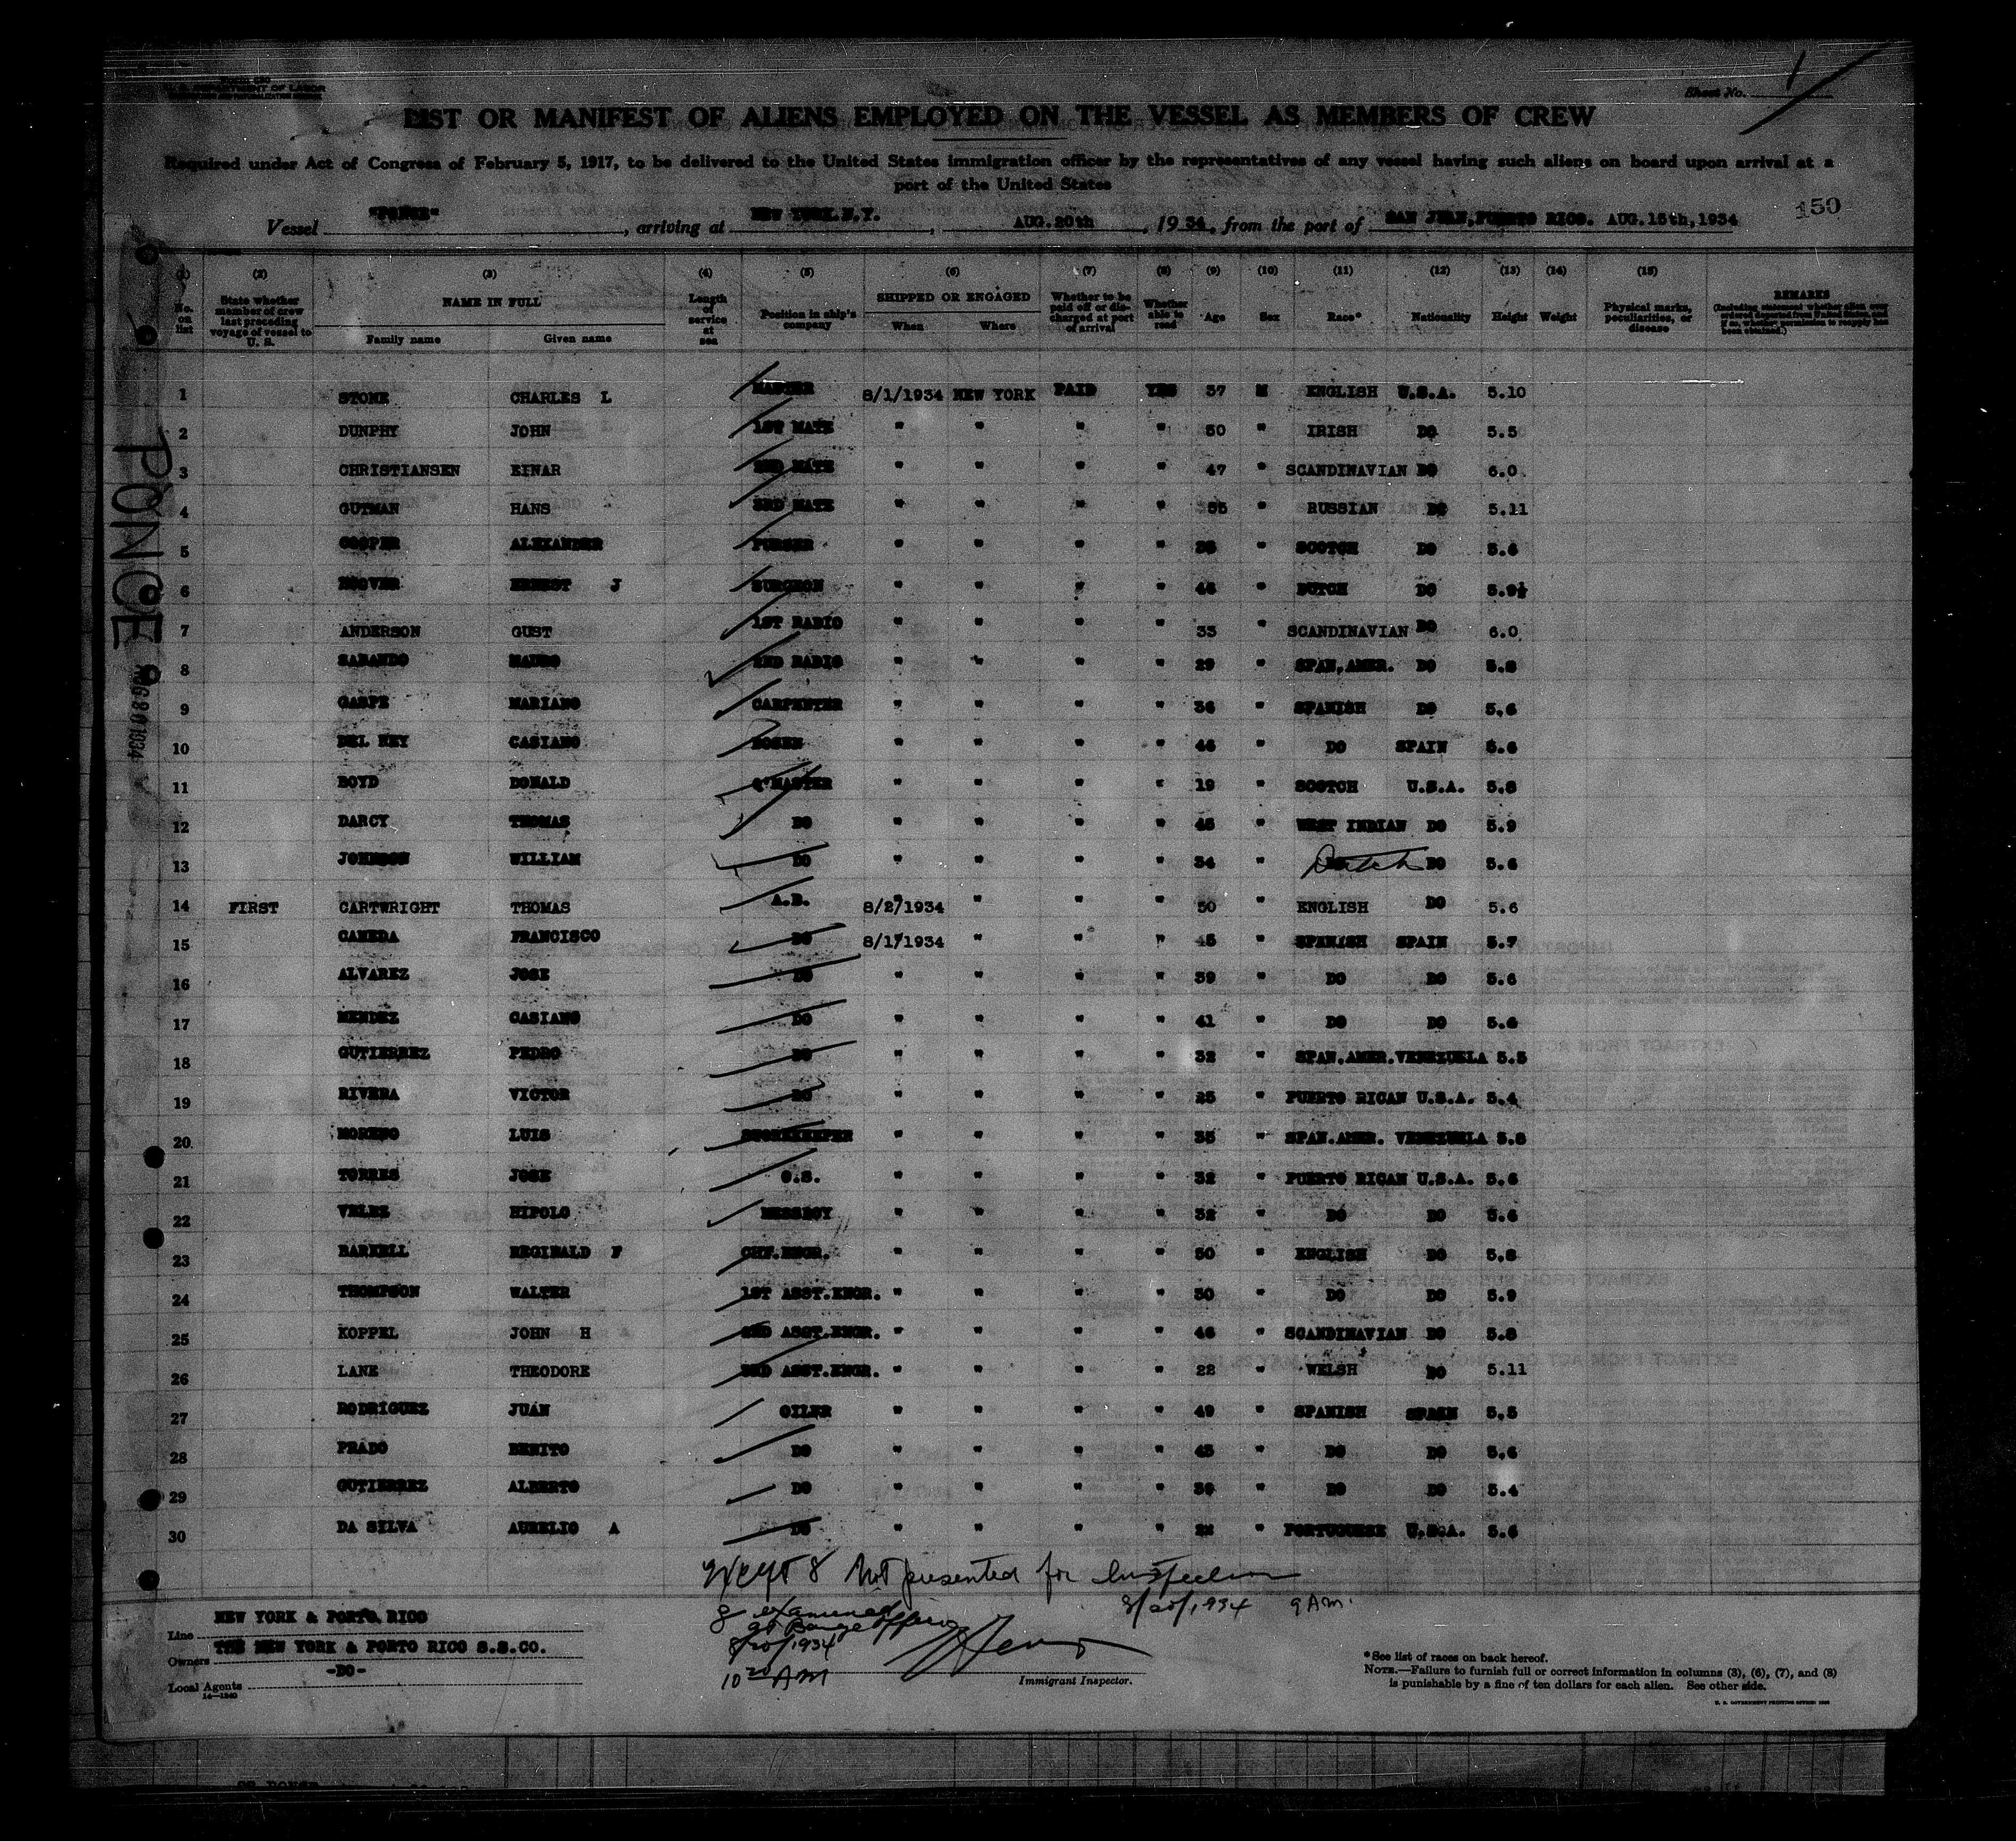 U. S. DEPARTMENT OF LABOR
Sheet No. 1
LIST OR MANIFEST OF ALIENS EMPLOYED ON THE VESSEL AS MEMBERS OF CREW
Required under Act of Congress of February 5, 1917, to be delivered to the United States immigration officer by the representatives of any vessel having such aliens on board upon arrival at a
port of the United States
150
Vessel "PONCE", arriving at NEW YORK.N.Y., AUG.20th, 1934, from the port of SAN JUAN,PUERTO RICO. AUG.15th,1934
(1) (2) (3) (4) (5) (6) (7) (8) (9) (10) (11) (12) (13) (14) (15)
No. on list
State whether member of crew last preceding voyage of vessel to U. S.
NAME IN FULL
Family name Given name
Length of service at sea
Position in ship's company
SHIPPED OR ENGAGED
When Where
Whether to be paid off or discharged at port of arrival
Whether able to read
Age Sex Race* Nationality Height Weight
Physical marks, peculiarities, or disease
REMARKS
(Including statement whether alien ever ordered deported from United States, and if so, whether permission to reapply has been obtained.)
1 STONE CHARLES L MASTER 8/1/1934 NEW YORK PAID YES 37 M ENGLISH U.S.A. 5.10
2 DUNPHY JOHN 1ST MATE " " " " 50 " IRISH DO 5.5
3 CHRISTIANSEN EINAR 2ND MATE " " " " 47 " SCANDINAVIAN DO 6.0
4 GUTMAN HANS 3RD MATE " " " " 35 " RUSSIAN DO 5.11
5 COOPER ALEXANDER PURSER " " " " " SCOTCH DO 5.6
6 HOOVER ERNEST J SURGEON " " " " 46 " DUTCH DO 5.9½
7 ANDERSON GUST 1ST RADIO " " " " 33 " SCANDINAVIAN DO 6.0
8 SABANDO MAURO 2ND RADIO " " " " 29 " SPAN.AMER. DO 5.8
9 GASPE MARIANO CARPENTER " " " " 36 " SPANISH DO 5.6
10 DEL REY CASIANO BOSEN " " " " 46 " DO SPAIN 5.6
11 BOYD DONALD Q'MASTER " " " " 19 " SCOTCH U.S.A. 5.8
12 DARCY THOMAS DO " " " " 45 " WEST INDIAN DO 5.9
13 JOHNSON WILLIAM DO " " " " 34 " Dutch DO 5.6
14 FIRST CARTWRIGHT THOMAS A.B. 8/2/1934 " " " 50 " ENGLISH DO 5.6
15 CANEDA FRANCISCO DO 8/1/1934 " " " 45 " SPANISH SPAIN 5.7
16 ALVAREZ JOSE DO " " " " 39 " DO DO 5.6
17 MENDEZ CASIANO DO " " " " 41 " DO DO 5.6
18 GUTIERREZ PEDRO DO " " " " 32 " SPAN.AMER. VENEZUELA 5.5
19 RIVERA VICTOR DO " " " " 25 " PUERTO RICAN U.S.A. 5.4
20 MORENO LUIS STOREKEEPER " " " " 35 " SPAN.AMER. VENEZUELA 5.8
21 TORRES JOSE O.S. " " " " 32 " PUERTO RICAN U.S.A. 5.6
22 VELEZ HIPOLO MESSBOY " " " " 32 " DO DO 5.6
23 BARNELL REGINALD F CHF.ENGR. " " " " 50 " ENGLISH DO 5.8
24 THOMPSON WALTER 1ST ASST.ENGR. " " " " 30 " DO DO 5.9
25 KOPPEL JOHN H 2ND ASST.ENGR. " " " " 46 " SCANDINAVIAN DO 5.8
26 LANE THEODORE 3RD ASST.ENGR. " " " " 22 " WELSH DO 5.11
27 RODRIGUEZ JUAN OILER " " " " 49 " SPANISH SPAIN 5.5
28 PRADO BENITO DO " " " " 45 " DO DO 5.6
29 GUTIERREZ ALBERTO DO " " " " 36 " DO DO 5.4
30 DA SILVA AURELIO A DO " " " " 22 " PORTUGUESE U.S.A. 5.6
PONCE
AUG 20 1934
Except 8 Not presented for Inspection
8/20/1934 9 AM.
8 examined
at Barge Office
8/20/1934
10 20 AM
Immigrant Inspector.
Line NEW YORK & PORTO RICO
Owners THE NEW YORK & PORTO RICO S.S.CO.
Local Agents -DO-
14—1240
*See list of races on back hereof.
NOTE.—Failure to furnish full or correct information in columns (3), (6), (7), and (8)
is punishable by a fine of ten dollars for each alien. See other side.